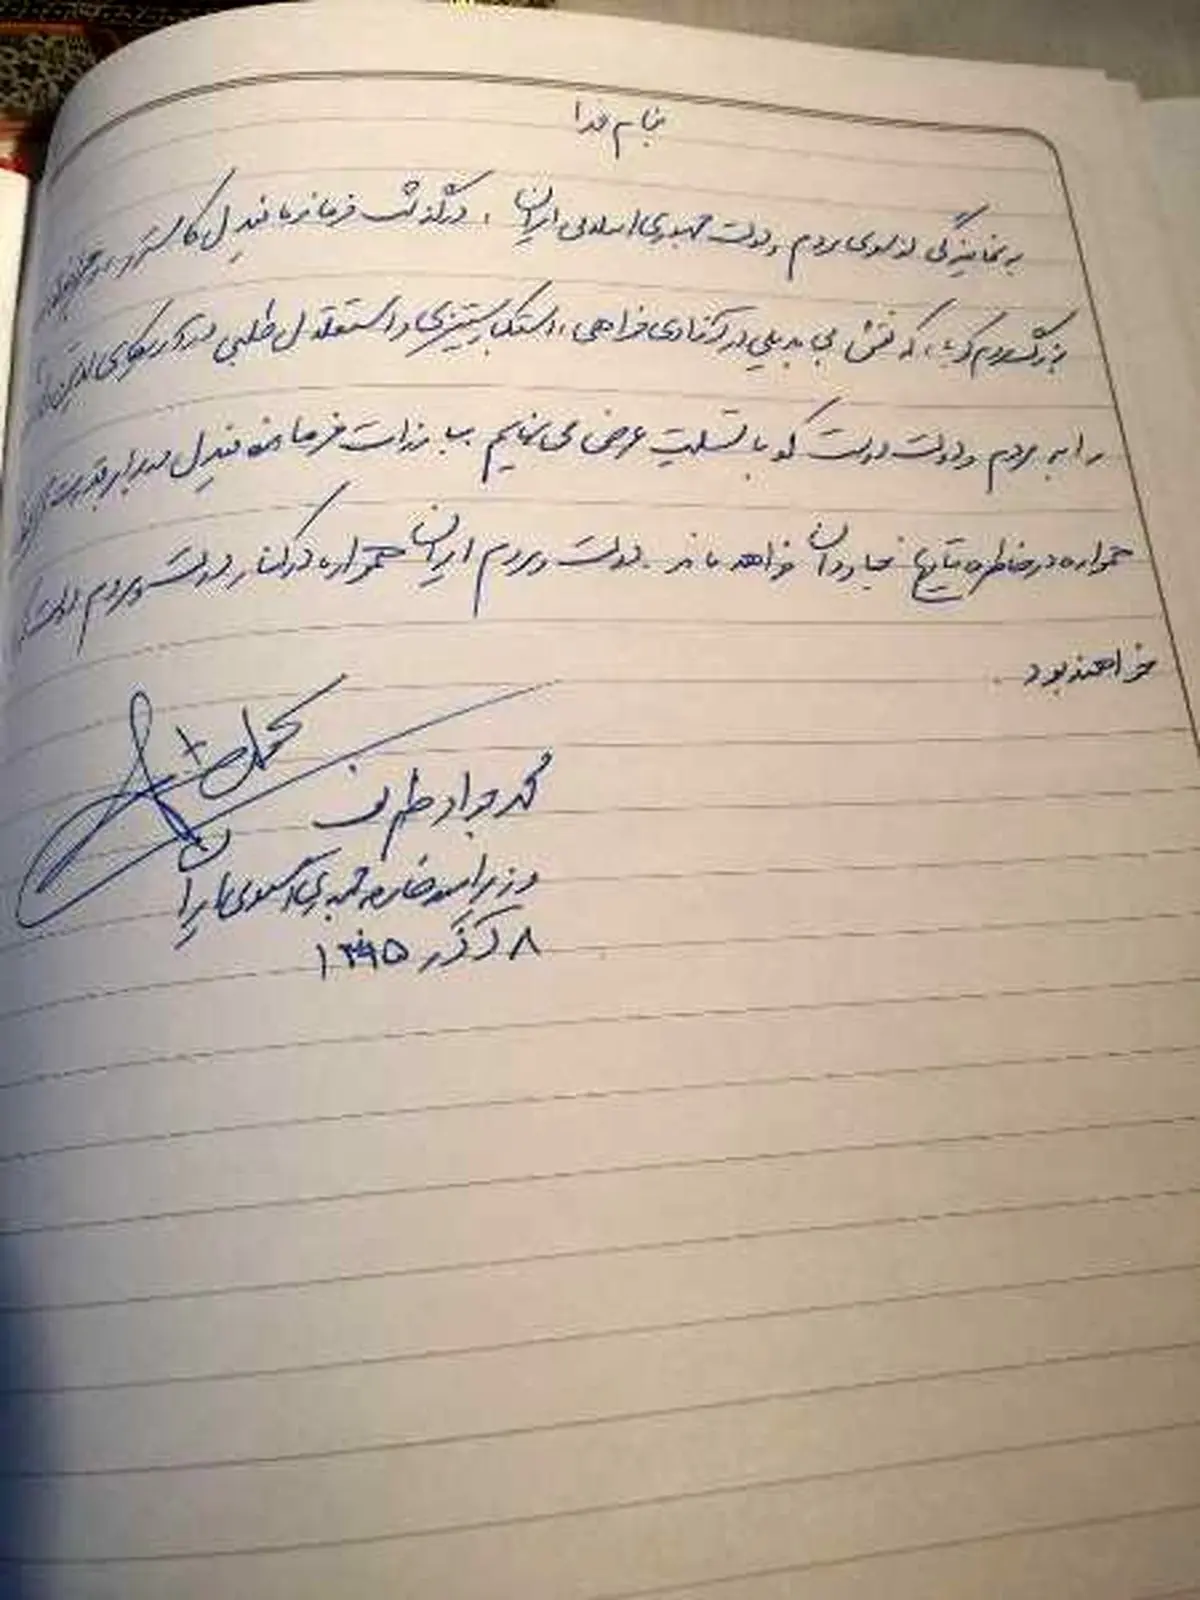 بنام خدا
به نمایندگی از سوی مردم و دولت جمهوری اسلامی ایران ، درگذشت فرمانده فیدل کاسترو ، رهبر
بزرگ مردم کوبا ، که نقش بی بدیلی در آزادی خواهی ، استکبار ستیزی و استقلال طلبی در آمریکای لاتین
را به مردم و دولت دوست کوبا تسلیت عرض می نمایم . مبارزات فرمانده فیدل در برابر
همواره در خاطره تاریخ جاودان خواهد ماند . دولت و مردم ایران همواره در کنار دولت و مردم دوست
خواهند بود .
محمد جواد ظریف
وزیر امور خارجه جمهوری اسلامی ایران
۸ آذر ۱۳۹۵